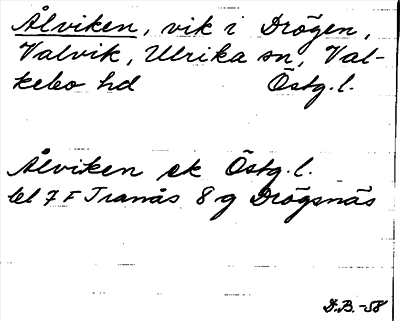 Ålviken, vik i Drögen,
Valvik, Ulrika sn, Val-
kebo hd Östg. l.
Ålviken ek Östg. l.
bl 7 F Tranås 8 g Drögsnäs
D.B. -58